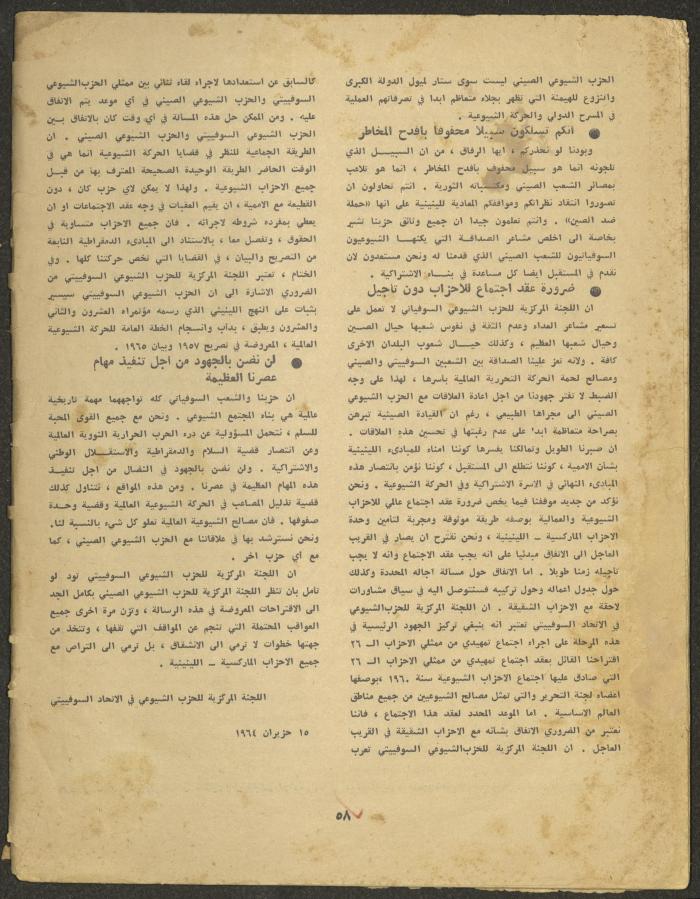 الحزب الشيوعي الصيني ليست سوى ستار لميول الدولة الكبرى
والنزوع للهيمنة التي تظهر بجلاء متعاظم ابدا في تصرفاتهم العملية
في المسرح الدولي والحركة الشيوعية .
● انكم تسلكون سبيلا محفوفا بافدح المخاطر
وبودنا لو نحذركم ، ايها الرفاق ، من ان السبيــل الذي
تلجونه انما هو سبيل محفوف بافدح المخاطر ، انما هو تلاعب
بمصائر الشعب الصيني ومكسباته الثورية . انتم تحاولون ان
تصوروا انتقاد نظراتكم ومواقفكم المعادية للينينية على انها «حملة
ضد الصين» . وانتم تعلمون جيدا ان جميع وثائق حزبنا تشير
بخاصة الى اخلص مشاعر الصداقــة التي يكنهــا الشيوعيون
السوفياتيون للشعب الصيني الذي قدمنا له ونحن مستعدون لان
نقدم في المستقبل ايضا كل مساعدة في بنــاء الاشتراكية .
● ضرورة عقد اجتماع للاحزاب دون تاجيل
ان اللجنة المركزية للحزب الشيوعي السوفياتي لا تعمل على
تسعير مشاعر العداء وعدم الثقة في نفوس شعبها حيال الصــين
وحيال شعبها العظيم ، وكذلك حيــال شعوب البلدان الاخرى
كافة . ولانه تعز علينا الصداقة بين الشعبين السوفييتي والصيني
ومصالح لحمة الحركة التحررية العالمية باسرها ، لهذا على وجه
الضبط لا تفتر جهودنا من اجل اعادة العلاقات مع الحزب الشيوعي
الصيني الى مجراها الطبيعي ، رغم ان القيادة الصينية تبرهن
بصراحة متعاظمة ابدا على عدم رغبتها في تحسين هذه العلاقات .
ان صبرنا الطويل وتمالكنا يفسرها كوننا امناء للمبادىء اللينينية
بشان الاممية ، كوننا نتطلع الى المستقبل ، كوننا نؤمن بانتصار هذه
المبادىء النهائي في الاسرة الاشتراكية وفي الحركة الشيوعية . ونحن
نؤكد من جديد موقفنا فيما يخص ضرورة عقد اجتماع عالمي للاحزاب
الشيوعية والعمالية بوصفه طريقة موثوقة ومجربة لتامين وحدة
الاحزاب الماركسية ــ اللينينية ، ونحن نقترح ان يصار في القريب
العاجل الى الاتفاق مبدئيا على انه يجب عقد الاجتماع وانه لا يجب
تاجيله زمنا طويلا . اما الاتفاق حول مسالة اجاله المحددة وكذلك
حول جدول اعماله وحول تركيبه فسنتوصل اليه في سياق مشاورات
لاحقة مع الاحزاب الشقيقة . ان اللجنة المركزية للحزب الشيوعي
في الاتحاد السوفييتي تعتبر انه ينبغي تركيز الجهود الرئيسية في
هذه المرحلة على اجراء اجتماع تمهيدي من ممثلي الاحزاب الــ ٢٦
اقتراحنا القائل بعقد اجتماع تمهيدي من ممثلي الاحزاب الــ ٢٦
التي صادق عليها اجتماع الاحزاب الشيوعية سنة ١٩٦٠ بوصفها
اعضاء لجنة التحرير والتي تمثل مصالح الشيوعيين من جميع مناطق
العالم الاساسية . اما الموعد المحدد لعقد هذا الاجتماع ، فاننا
نعتبر من الضروري الاتفاق بشانه مع الاحزاب الشقيقة في القريب
العاجل . ان اللجنة المركزية للحزب الشيوعي السوفييتي تعرب
كالسابق عن استعدادها لاجراء لقاء ثنائي بين ممثلي الحزب الشيوعي
السوفييتي والحزب الشيوعي الصيني في اي موعد يتم الاتفاق
عليه . ومن الممكن حل هذه المسالة في اي وقت كان بالاتفاق بــين
الحزب الشيوعي السوفييتي والحزب الشيوعي الصيني . ان
الطريقة الجماعية للنظر في قضايا الحركة الشيوعية انما هي في
الوقت الحاضر الطريقة الوحيدة الصحيحة المعترف بها من قبــل
جميع الاحزاب الشيوعية . ولهذا لا يمكن لاي حزب كان ، دون
القطيعة مع الاممية ، ان يقيم العقبات في وجه عقد الاجتماعات او ان
يعطي بمفرده شروطه لاجرائه . فان جميع الاحزاب متساوية في
الحقوق ، وتفصل معا ، بالاستناد الى المبادىء الدمقراطية النابعة
من التصريح والبيان ، في القضايا التي تخص حركتنا كلها . وفي
الختام ، تعتبر اللجنة المركزية للحزب الشيوعي السوفييتي من
الضروري الاشارة الى ان الحزب الشيوعي السوفييتي سيسير
بثبات على النهج اللينيني الذي رسمه مؤتمراه العشرون والثاني
والعشرون ويطبق ، بداب وانسجام الخطة العامة للحركة الشيوعية
العالمية ، المعروضة في تصريح ١٩٥٧ وبيان ١٩٦٥ .
● لن نضن بالجهود من اجل تنفيذ مهام
عصرنا العظيمة
ان حزبنا والشعب السوفياتي كله تواجههما مهمة تاريخية
عالمية هي بناء المجتمع الشيوعي . ونحن مع جميع القوى المحبة
للسلم ، نتحمل المسؤولية عن درء الحرب الحرارية النووية العالمية
وعن انتصار قضية السلام والدمقراطية والاستقــلال الوطني
والاشتراكية . ولن نضن بالجهود في النضال من اجل تنفيــذ
هذه المهام العظيمة في عصرنا . ومن هذه المواقع ، نتناول كذلك
قضية تذليل المصاعب في الحركة الشيوعية العالمية وقضية وحــدة
صفوفها . فان مصالح الشيوعية العالمية تعلو كل شيء بالنسبة لنا .
ونحن نسترشد بها في علاقاتنا مع الحزب الشيوعي الصيني ، كما
مع اي حزب اخر .
ان اللجنة المركزية للحزب الشيوعي السوفييتي تود لو
تامل بان تنظر اللجنة المركزية للحزب الشيوعي الصيني بكامل الجد
الى الاقتراحات المعروضة في هذه الرسالة ، وتزن مرة اخرى جميع
العواقب المحتملة التي تنجم عن المواقف التي تقفها ، وتتخذ من
جهتها خطوات لا ترمي الى الانشقاق ، بل ترمي الى التراص مع
جميع الاحزاب الماركسية ــ اللينينية .
اللجنة المركزية للحزب الشيوعي في الاتحاد السوفييتي
١٥ حزيران ١٩٦٤
٥٨